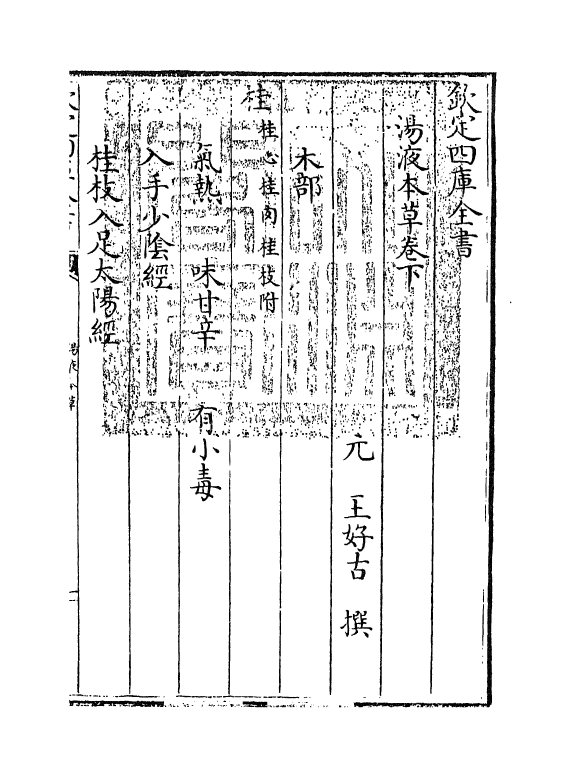 欽定四庫全書
湯液本草卷下
元 王好古 撰
木部
桂桂心桂肉桂枝附
氣熱 味甘辛 有小毒
入手少陰經
桂枝入足太陽經